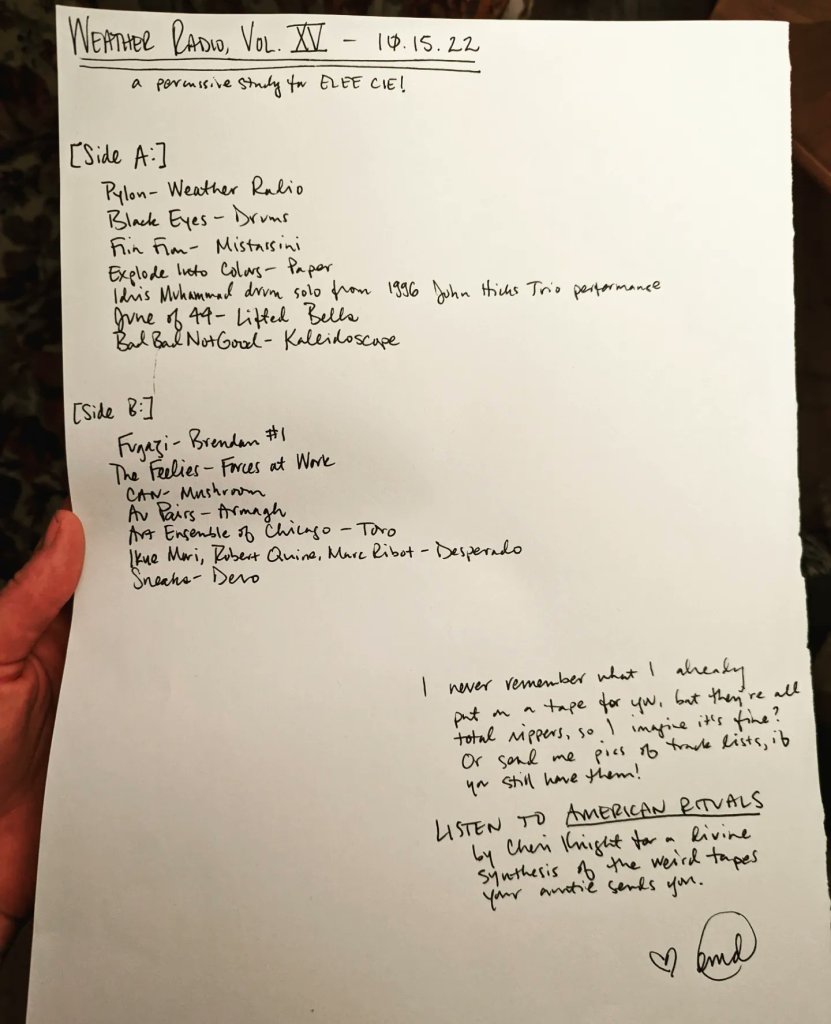 WEATHER RADIO, VOL. XV – 10.15.22
a percussive study for ELEE CIE!
[Side A:]
Pylon – Weather Radio
Black Eyes – Drums
Fin Fin – Mistassini
Explode Into Colors – Paper
Idris Muhammad drum solo from 1996 John Hicks Trio performance
June of 44 – Lifted Bells
BadBadNotGood – Kaleidoscope
[Side B:]
Fugazi – Brendan #1
The Feelies – Forces at Work
CAN – Mushroom
Au Pairs – Armagh
Art Ensemble of Chicago – Toro
Ikue Mori, Robert Quine, Marc Ribot – Desperado
Sneaks – Devo
I never remember what I already
put on a tape for you, but they're all
total rippers, so I imagine it's fine?
Or send me pics of track lists, if
you still have them!
LISTEN TO AMERICAN RITUALS
by Cheri Knight for a divine
synthesis of the weird tapes
your auntie sends you.
♡ emd